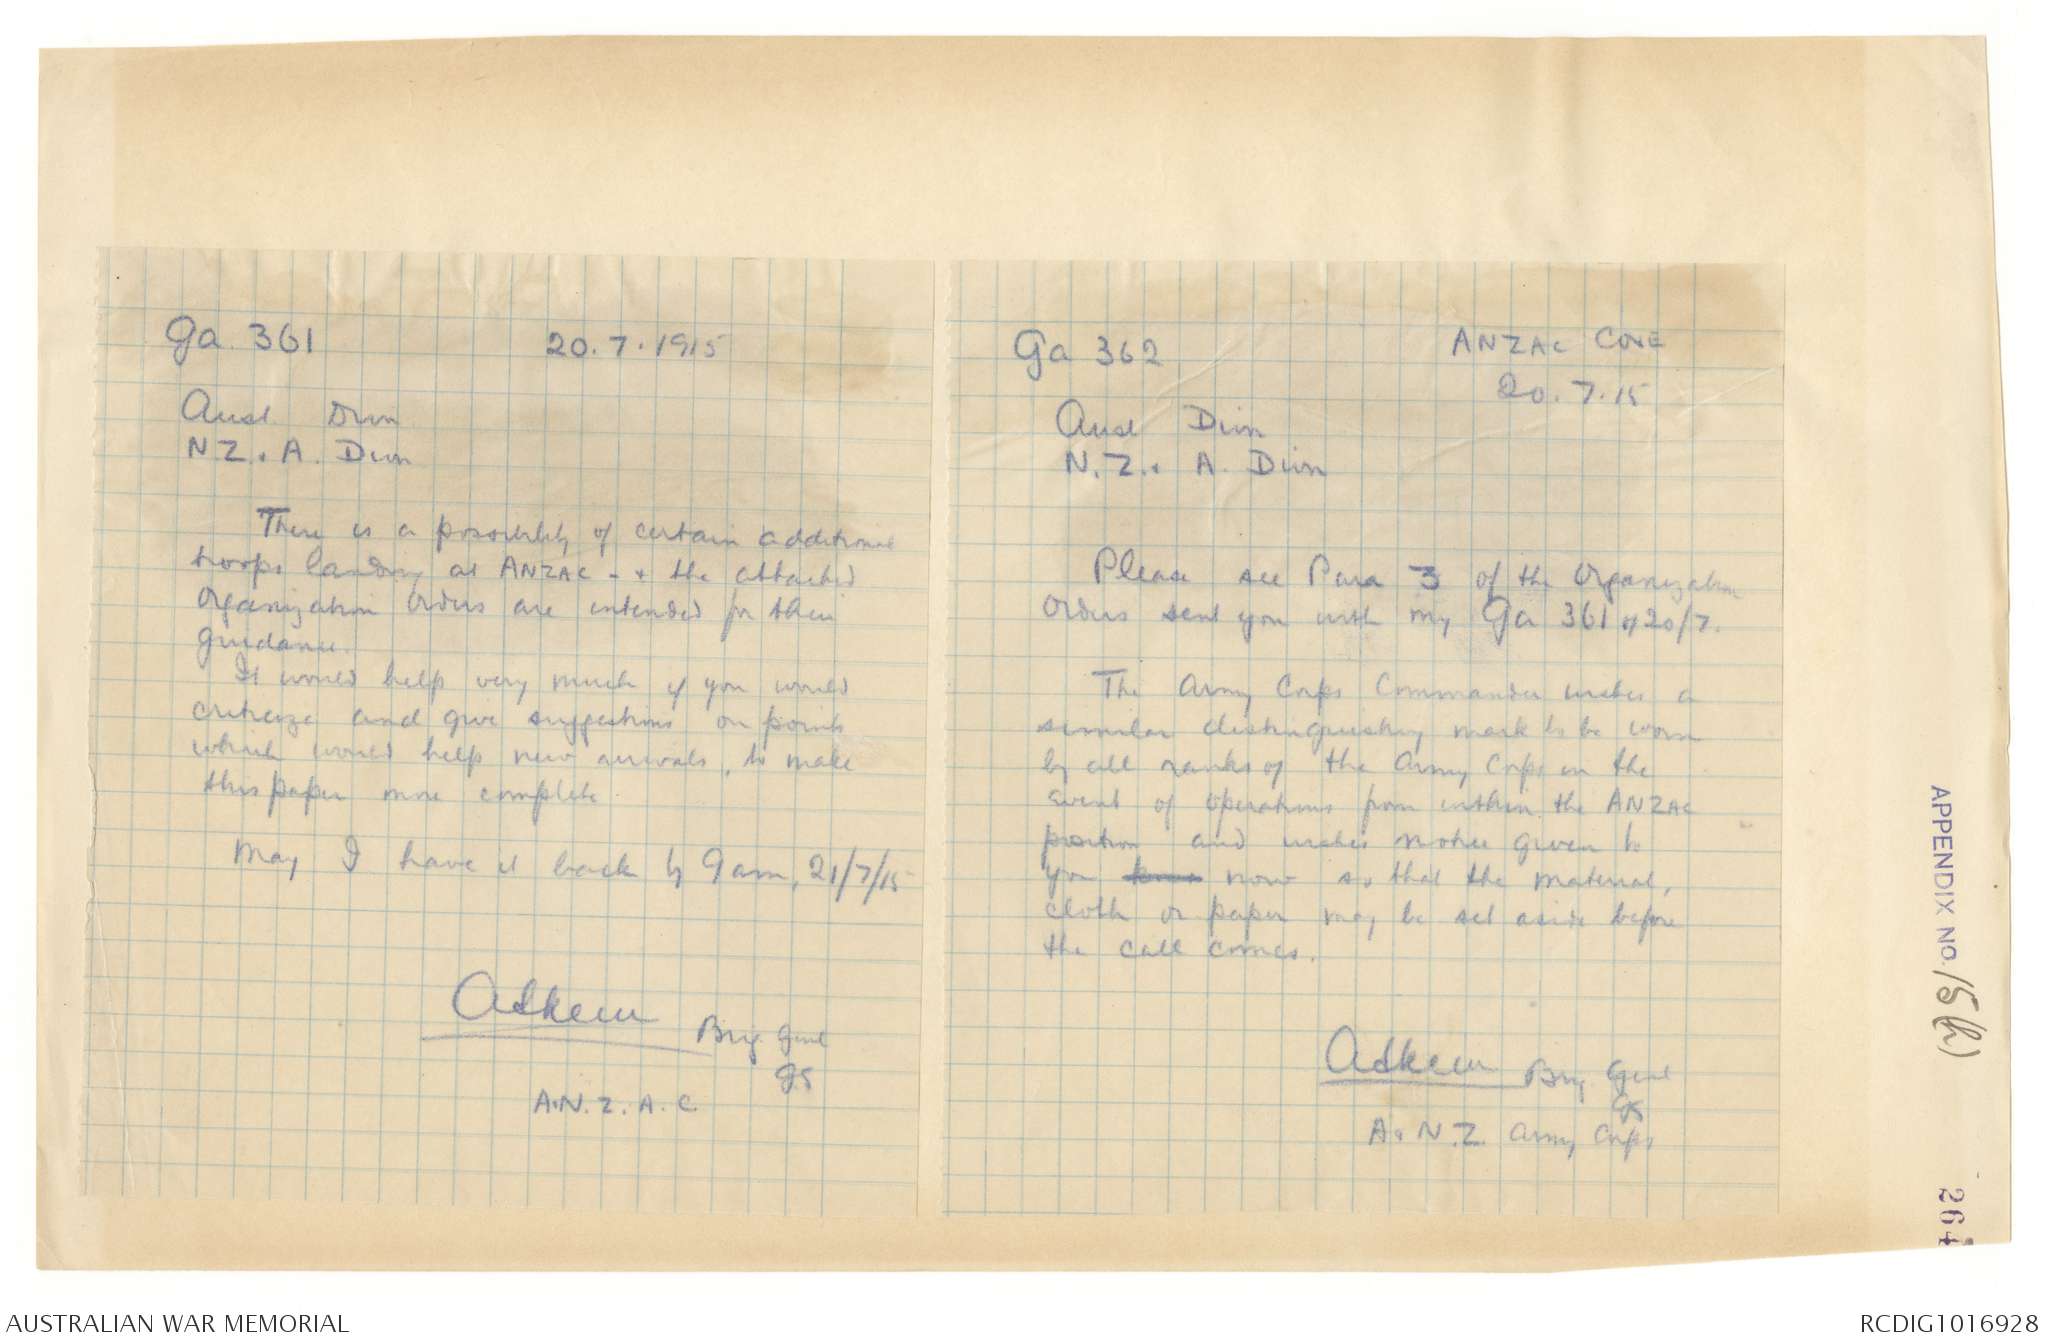 Ga 361 20.7.1915
Aust Divn
N Z. & A. Divn
There is a possibility of certain additional
troops landing at ANZAC - & the attached
Organization Orders are intended for their
guidance.
It would help very much if you would
criticize and give suggestions on points
which would help new arrivals, to make
this paper more complete.
May I have it back by 9 am, 21/7/15
Brig. Genl
GS
A.N.Z.A.C.
Ga 362 ANZAC COVE
20.7.15
Aust Divn
N.Z. & A. Divn
Please see Para 3 of the Organization
Orders sent you with my Ga 361 of 20/7.
The Army Corps Commander wishes a
similar distinguishing mark to be worn
by all ranks of the Army Corps in the
event of operations from within the ANZAC
position and wishes notice given to
you now so that the material,
cloth or paper may be set aside before
the call comes.
Brig Genl
GS
A & N.Z. Army Corps
APPENDIX NO. 15(h)
264
AUSTRALIAN WAR MEMORIAL RCDIG1016928